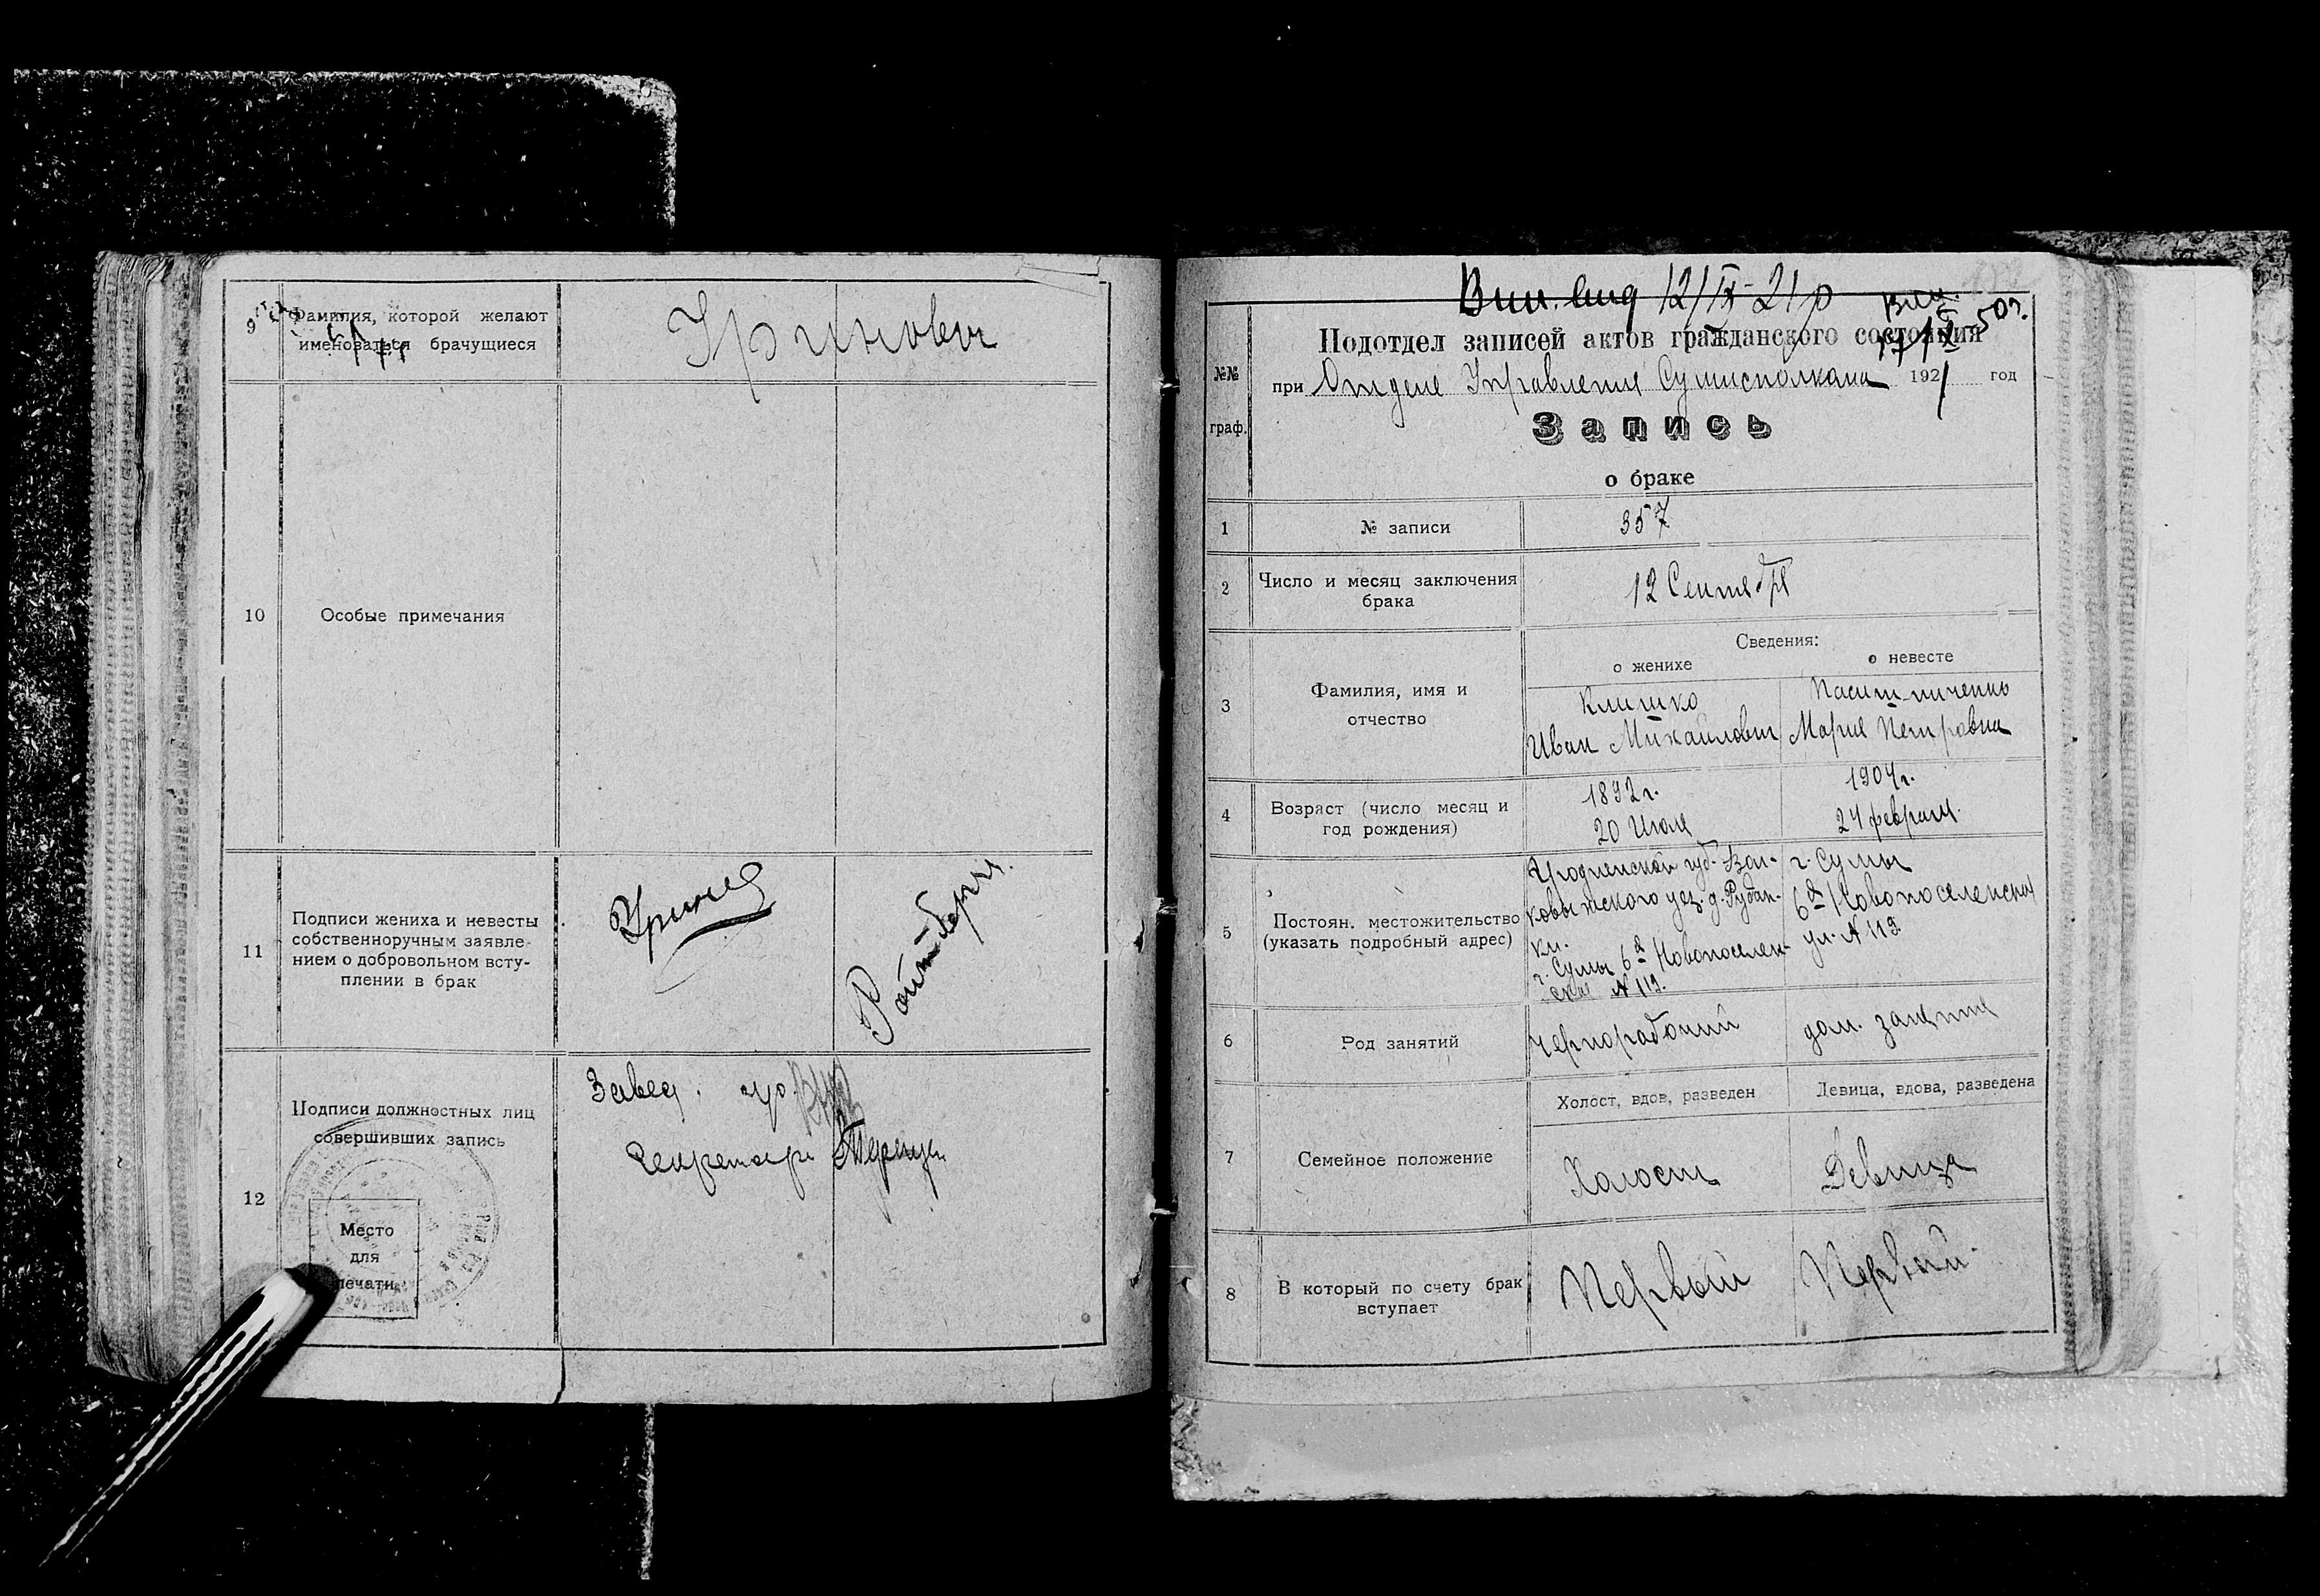 9
Фамилия, которой желают
именоваться брачущиеся
10
Особые примечания
11
Подписи жениха и невесты
собственноручным заявле-
нием о добровольном всту-
плении в брак
12
Подписи должностных лиц
совершивших запись
Завед.
Секретарь
Место
для
печати
12/IX-21р
50г.
Подотдел записей актов гражданского состояния
№№
граф.
при Отделе Управления Сумисполкома 1921 год
Запись
о браке
1
№ записи
357
2
Число и месяц заключения
брака
12 Сентября
Сведения:
о женихе
о невесте
3
Фамилия, имя и
отчество
Клишко
Иван Михайлович
Мария Петровна
4
Возраст (число месяц и
год рождения)
1892г.
20 Июля
1904г.
24 февраля.
5
Постоян. местожительство
(указать подробный адрес)
Гродненской губ. Вол-
ковыжского уез. д. Рудав-
ки.
г. Сумы 6я Новопоселен-
ская № 119.
г. Сумы
6я Новопоселенская
ул. № 119.
6
Род занятий
Чернорабочий
дом. занятия
7
Семейное положение
Холост, вдов, разведен
Девица, вдова, разведена
Холост
Девица
8
В который по счету брак
вступает
Первый
Первый